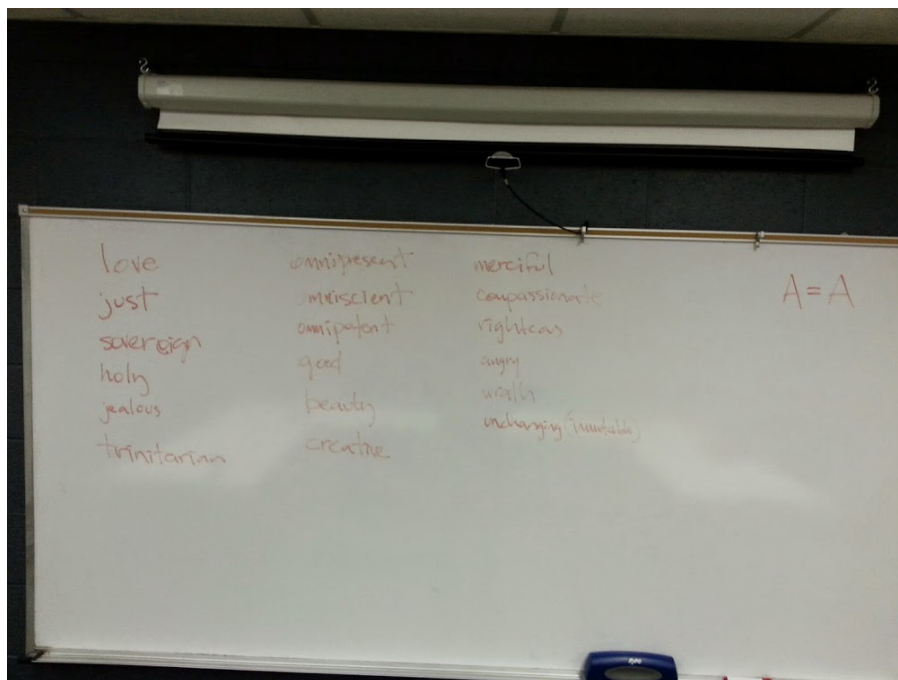 love
just
sovereign
holy
jealous
trinitarian
omnipresent
omniscient
omnipotent
good
beauty
creative
merciful
compassionate
righteous
angry
unchanging (immutable)
A = A